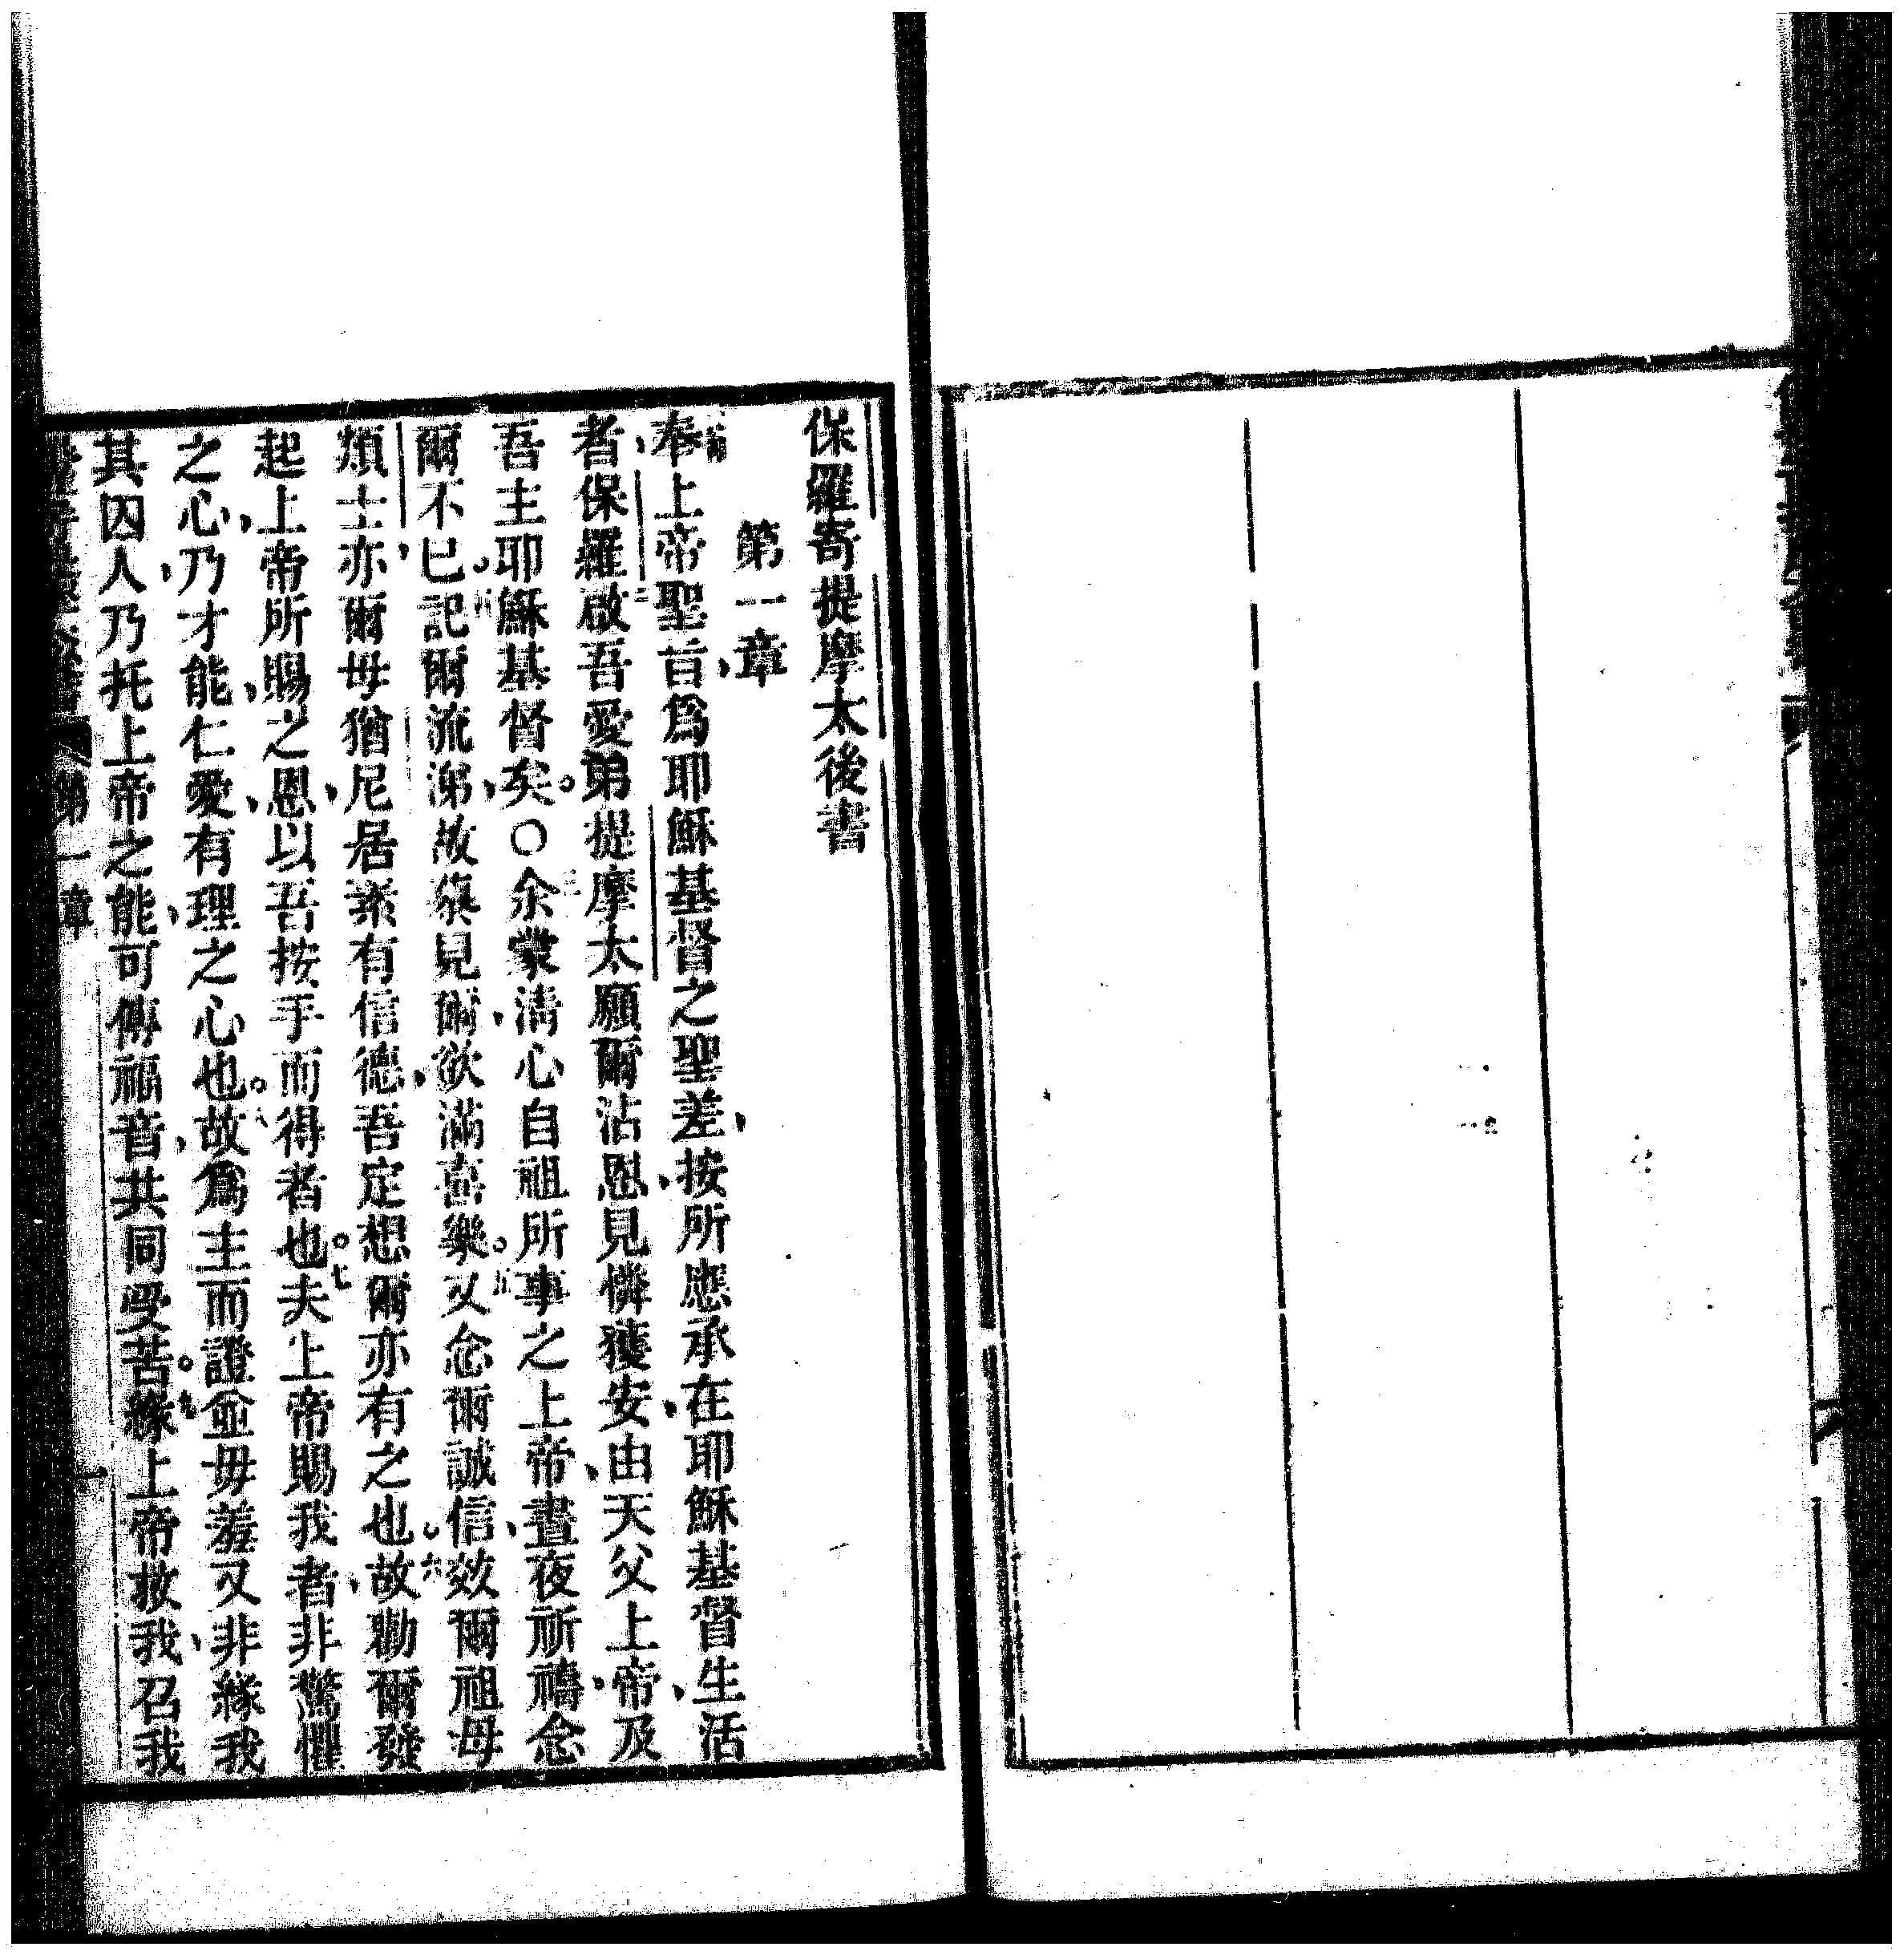 保羅寄提摩太後書
第一章
奉上帝聖旨、爲耶穌基督之聖差、按所應承在耶穌基督生活
者、保羅二啟吾愛弟提摩太願爾沾恩、見憐獲安、由天父上帝、及
吾主耶穌基督矣。〇三余蒙淸心自祖所事之上帝、晝夜祈禱、念
爾不已。四記爾流涕、故綦見爾、欲滿喜樂。五又念爾誠信、效爾祖母
類士、亦爾母猶尼居素有信德、吾定想爾亦有之也。六故勸爾發
起上帝所賜之恩、以吾按手而得者也。七夫上帝賜我者、非驚懼
之心、乃才能、仁愛、有理之心也。八故爲主而證、並毋羞、又非緣我
其囚人、乃托上帝之能、可傳福音、共同受苦。九緣上帝救我、召我
第一章
一